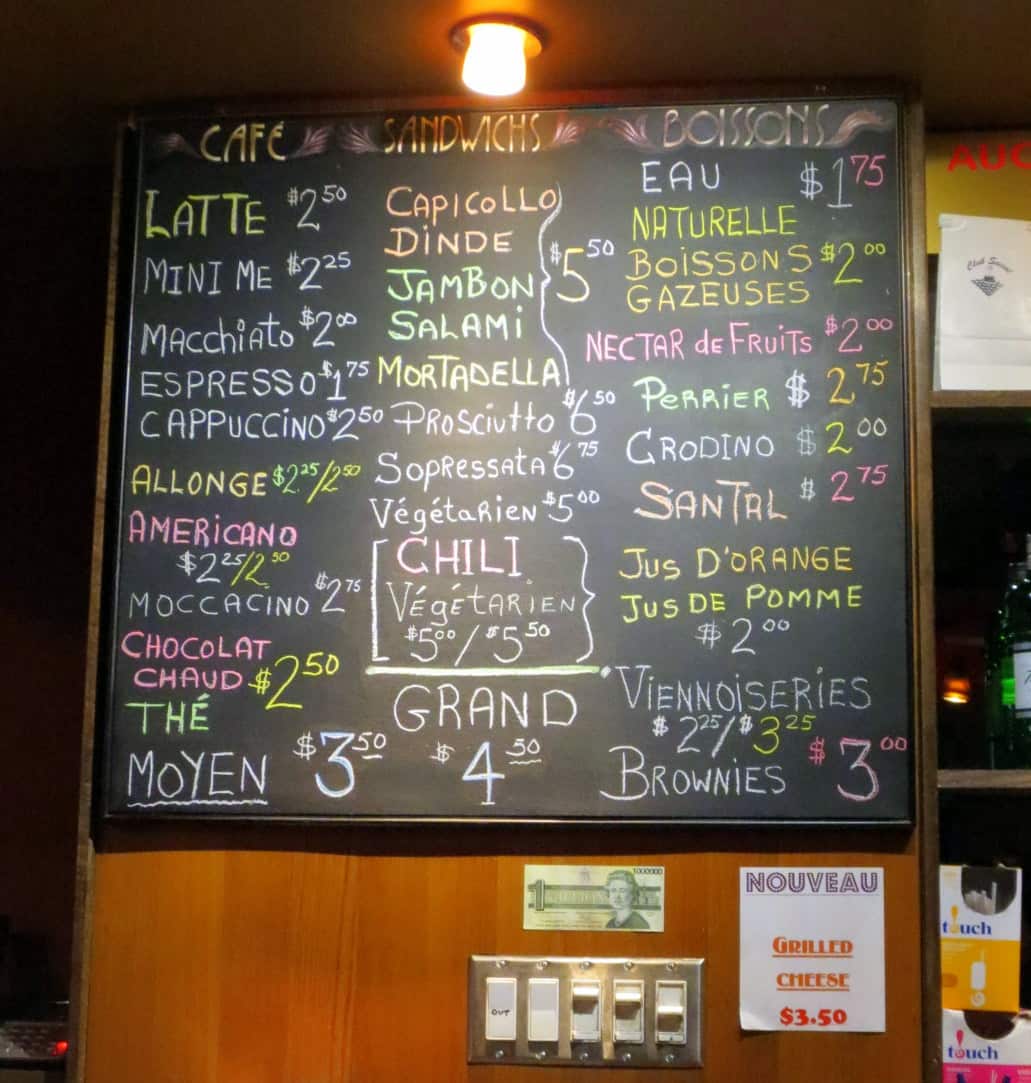 CAFÉ
LATTE $2.50
MINI ME $2.25
MACCHIATO $2.00
ESPRESSO $1.75
CAPPUCCINO $2.50
ALLONGE $2.25/2.50
AMERICANO
$2.25/2.50
MOCCACINO $2.75
CHOCOLAT
CHAUD $2.50
THÉ
MOYEN $3.50
SANDWICHS
CAPICOLLO
DINDE
$5.50
JAMBON
SALAMI
MORTADELLA
PROSCIUTTO $6.50
SOPRESSATA $6.75
VÉGÉTARIEN $5.00
CHILI
VÉGÉTARIEN
$5.00/$5.50
GRAND
$4.50
BOISSONS
EAU $1.75
NATURELLE
BOISSONS $2.00
GAZEUSES
NECTAR de FRUITS $2.00
PERRIER $2.75
GRODINO $2.00
SANTAL $2.75
JUS D'ORANGE
JUS DE POMME
$2.00
VIENNOISERIES
$2.25/$3.25
BROWNIES $3.00
AUC
Club Social
1 1000000
OUT
NOUVEAU
GRILLED
CHEESE
$3.50
touch
touch